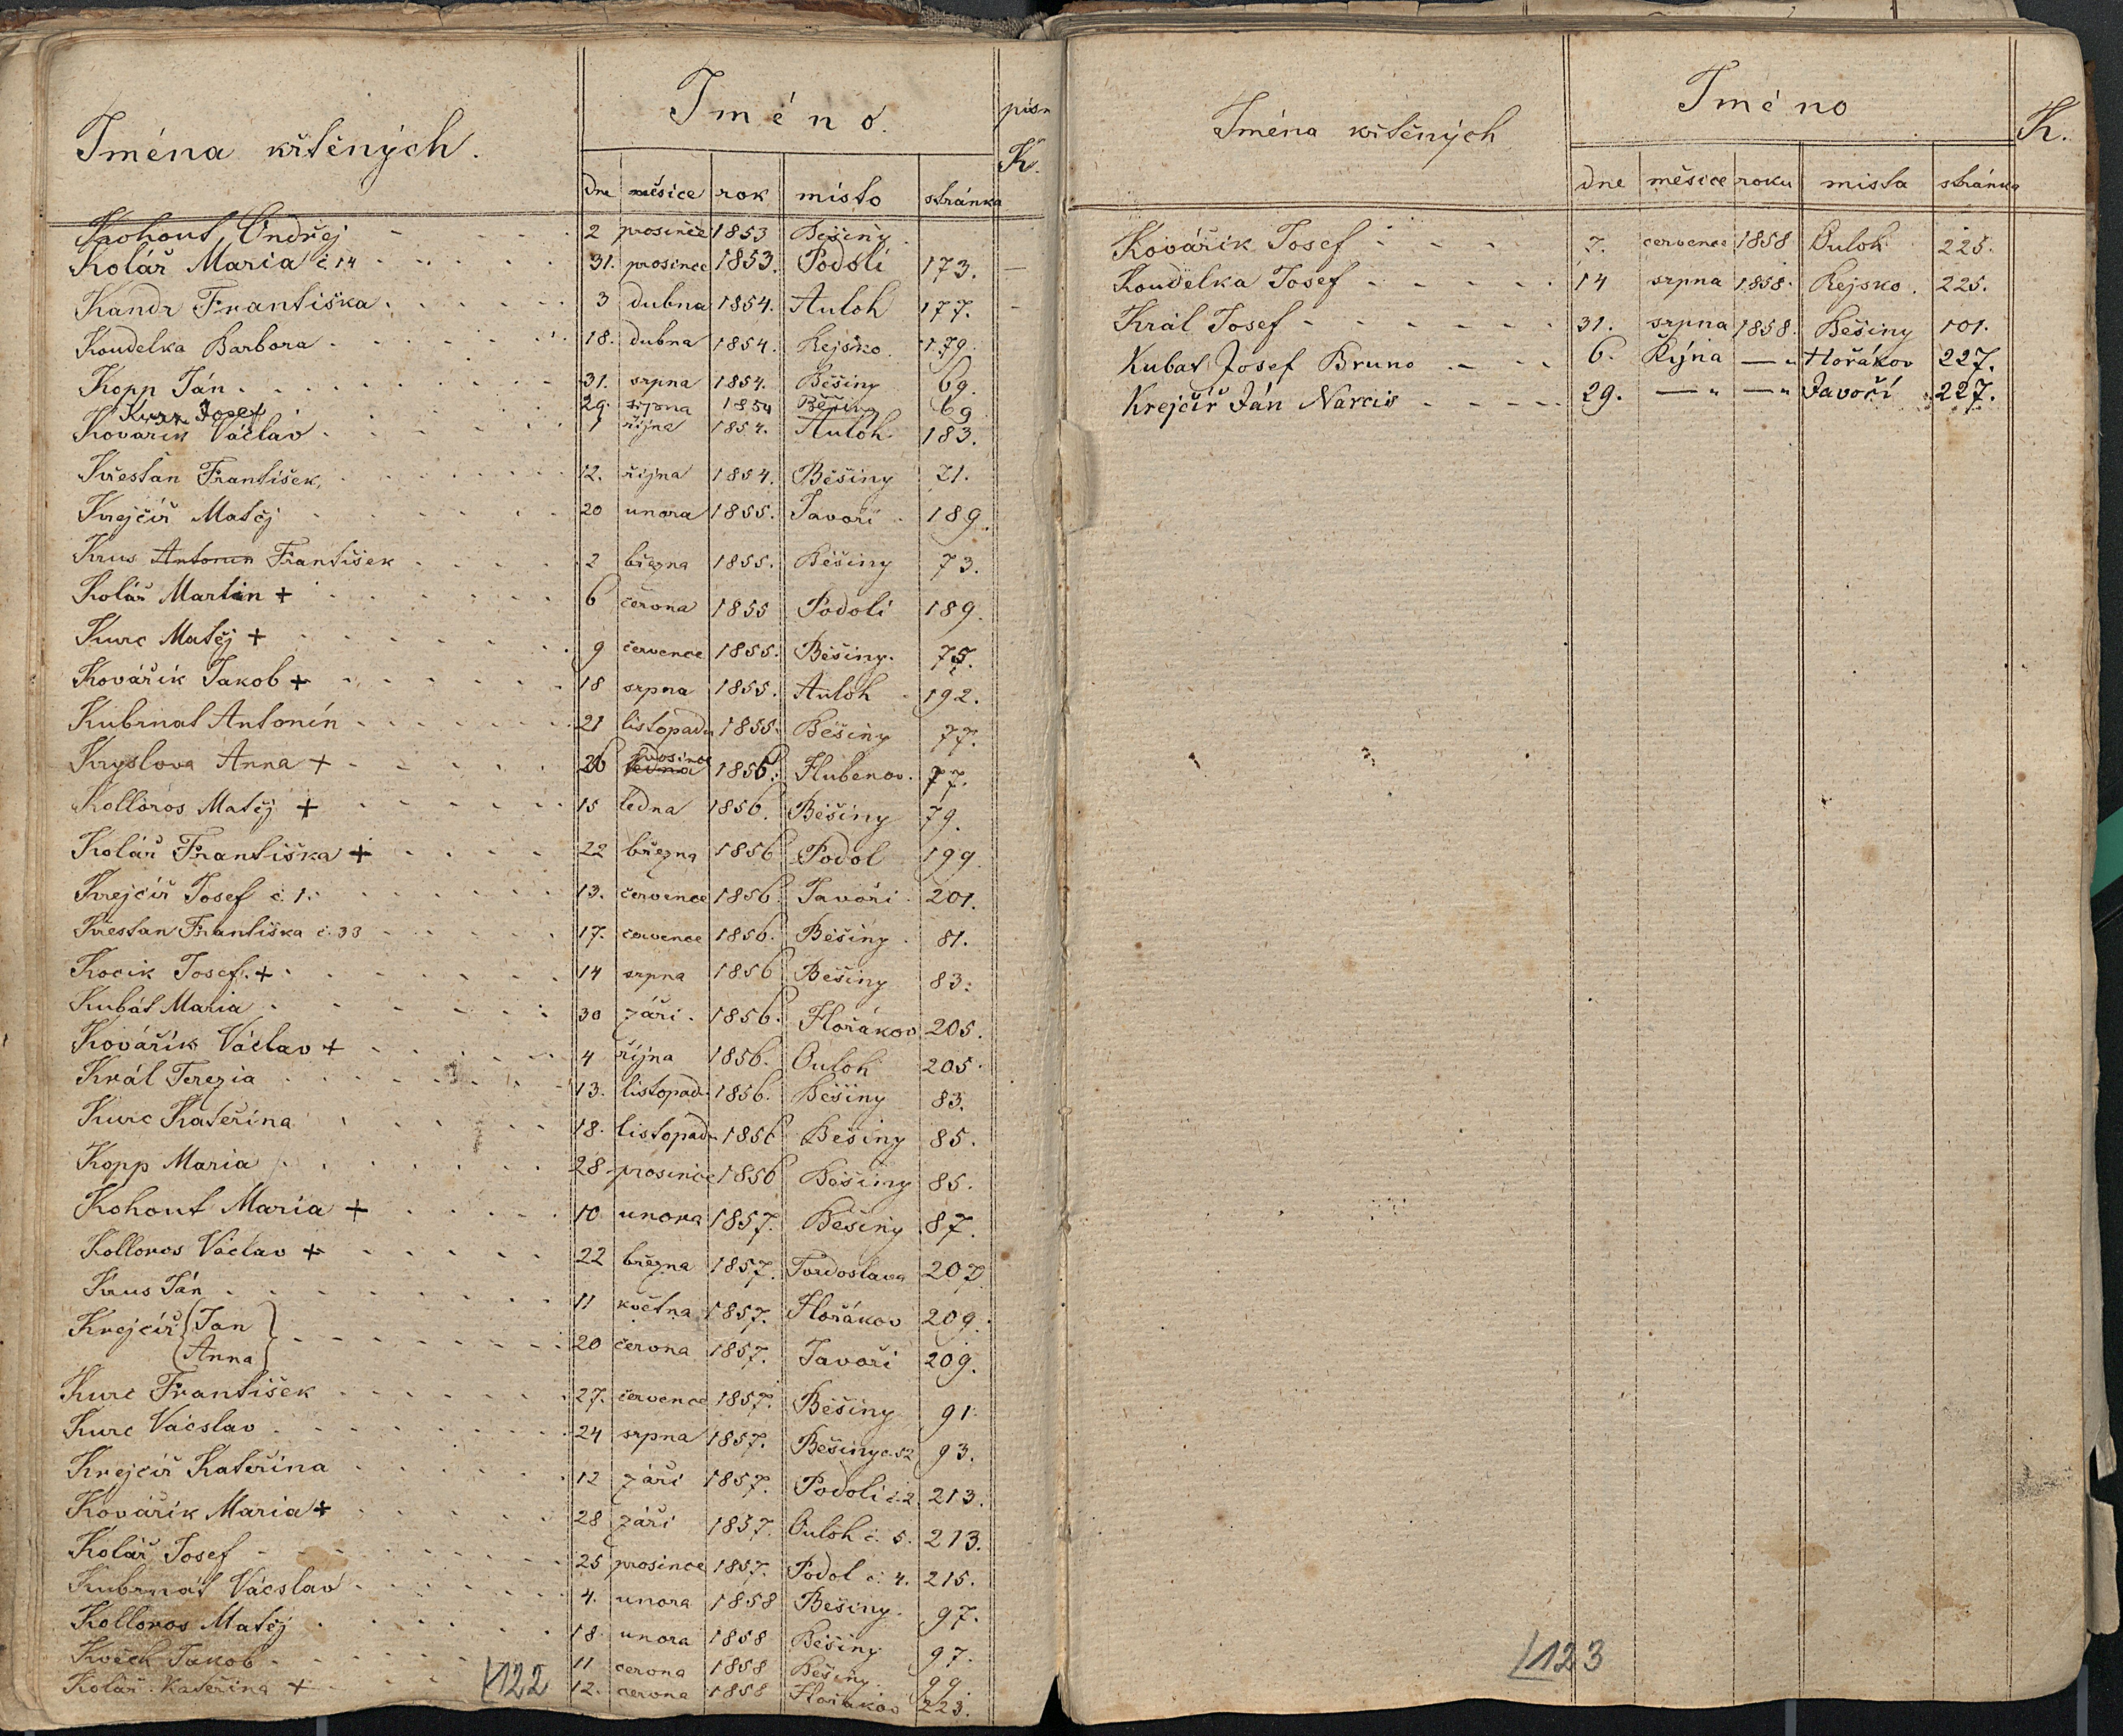 Jména křtěných.
Jméno.
písm
K.
dne měsíce rok místo stránka
Kohout Ondřej 2 prosince 1853 Běšiny
Kolář Maria č 14 31. prosince 1853. Podolí 173.
Kandr Františka 3 dubna 1854. Auloh 177.
Koudelka Barbora 18. dubna 1854. Rejsko. 179.
Kopp Ján 31. srpna 1854. Běšiny 69.
Kurz Josef 29. srpna 1854 Běšiny 69
Kovařík Václav 1 října 1854. Auloh 183.
Křestan František 12. října 1854. Běšiny 71.
Krejčíř Matěj 20 unora 1855. Javoří 189.
Krus Antonin František 2 března 1855. Běšiny 73.
Kolář Martin + 6 června 1855 Podolí 189.
Kurc Matěj + 9 července 1855. Běšiny. 75.
Kovářík Jakob + 18 srpna 1855. Auloh 192.
Kubrnat Antonín 21 listopadu 1855. Běšiny 77.
Kryslova Anna + 26 prosince ledna 1856. Hubenov. 77.
Kolloros Matěj + 15 ledna 1856. Běšiny 79.
Kolář Františka + 22 března 1856 Podol 199.
Krejčíř Josef č. 1. 13. července 1856. Javoři 201.
Křestan Františka č. 33 17. července 1856. Běšiny. 81.
Kocik Josef. + 14 srpna 1856 Běšiny 83.
Kubát Maria 30 září. 1856. Hořákov 205.
Kovářík Václav + 4 října 1856. Ouloh 205.
Král Terezia 13. listopadu 1856. Běšiny 83.
Kurc Kateřina 18. listopadu 1856 Běšiny 85.
Kopp Maria 28 prosince 1856 Běšiny 85.
Kohout Maria + 10 unora 1857. Běšiny 87.
Kolloros Václav + 22 března 1857. Tvrdoslava 207
Krus Ján 11 května 1857. Hořákov 209.
Krejčíř Jan
Anna 20 června 1857. Javoři 209.
Kurc František 27. července 1857. Běšiny 91.
Kurc Vácslav 24 srpna 1857. Běšiny č. 52 93.
Krejčíř Kateřina 12 září 1857. Podolí č. 2. 213.
Kovářík Maria + 28 září 1857 Ouloh č. 5. 213.
Kolář Josef 25 prosince 1857. Podol č. 4. 215.
Kubrnát Vácslav 4. unora 1858 Běšiny. 97.
Kolloros Matěj 18. unora 1858 Běšiny 97.
Jakob 11 června 1858 Běšiny. 99.
Kolář Kateřina + 12. června 1858 Hořákov 223.
122
Jména křtěných
Jméno
K.
dne měsíce roku místa stránka
Kovářik Josef 7. července 1858 Ouloh 225.
Koudelka Josef 14 srpna 1858. Rejsko. 225.
Král Josef 31. srpna 1858. Běšiny 101.
Kubat Josef Bruno 6. Října —„ Hořákov 227.
Krejčíř Ján Narcis 29. —„ —„ Javoří 227.
123